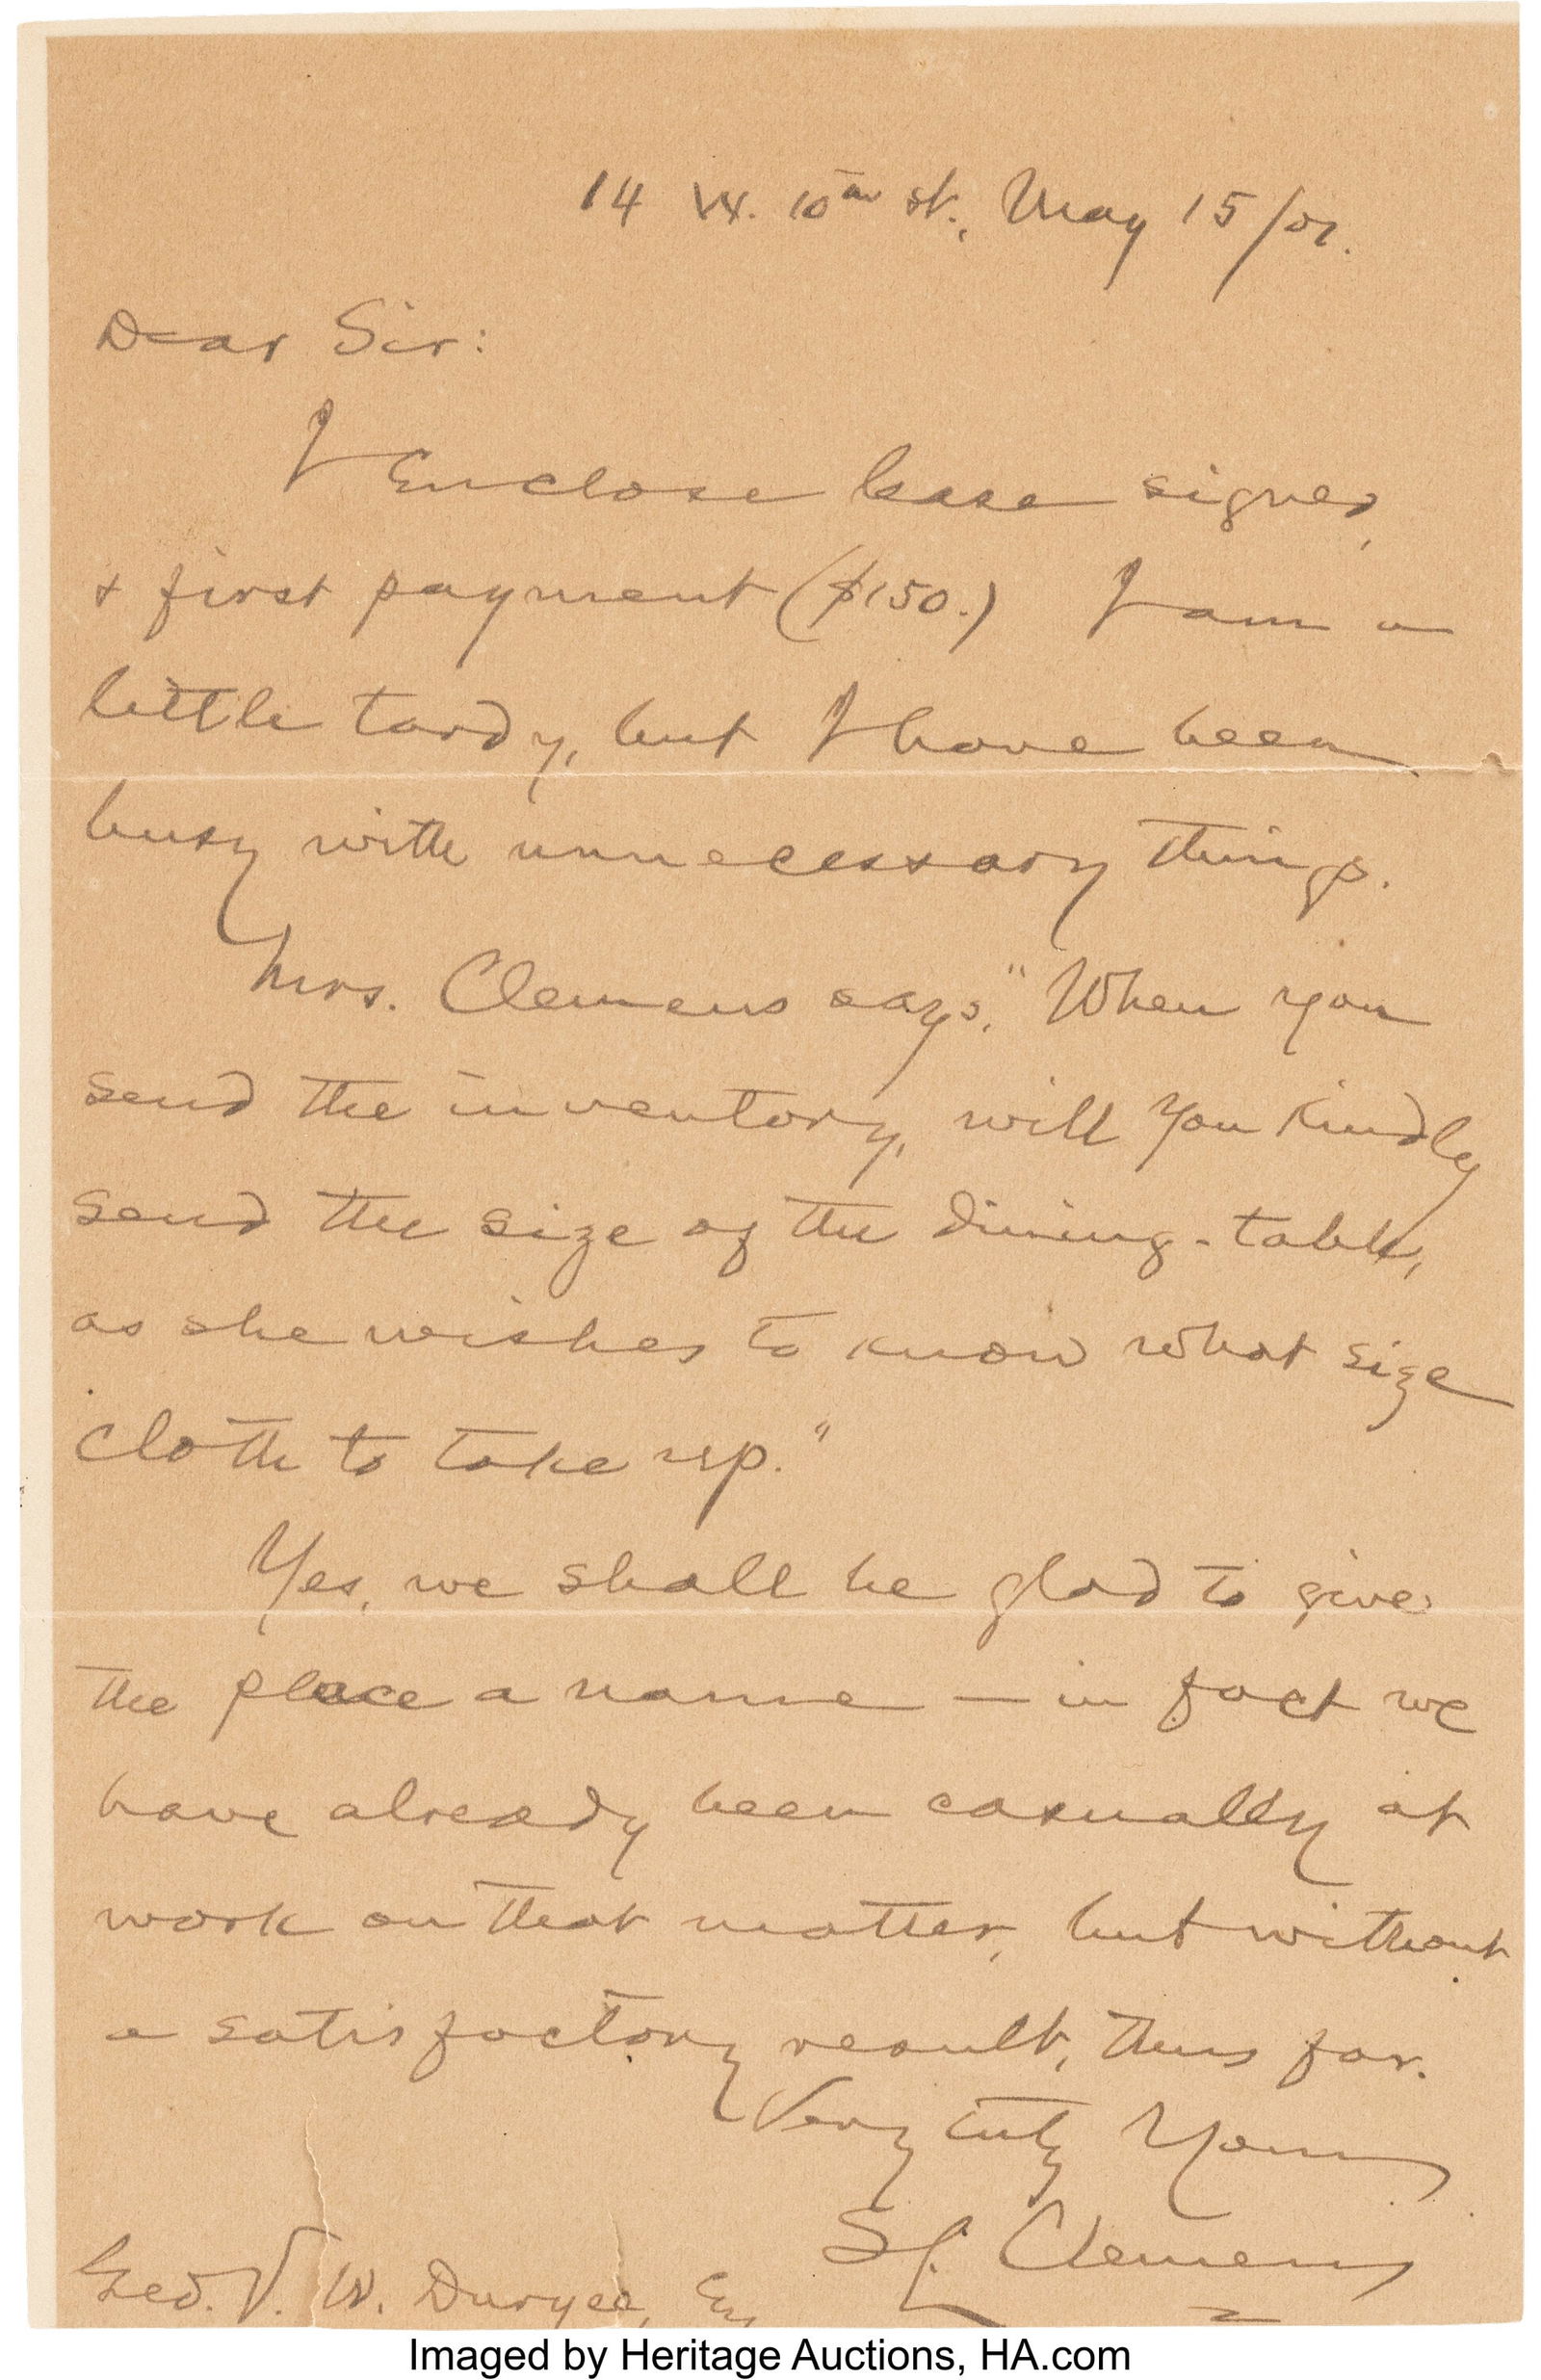 14 W. 10th st., May 15/01.
Dear Sir:
I enclose lease signed,
& first payment ($150.) I am a
little tardy, but I have been
busy with unnecessary things.
Mrs. Clemens says, "When you
send the inventory, will you kindly
send the size of the dining-table,
as she wishes to know what size
cloth to take up."
Yes, we shall be glad to give
the place a name — in fact we
have already been casually at
work on that matter, but without
a satisfactory result, thus far.
Very truly Yours
SL. Clemens
Geo. V. W. Duryee, Esq
Imaged by Heritage Auctions, HA.com